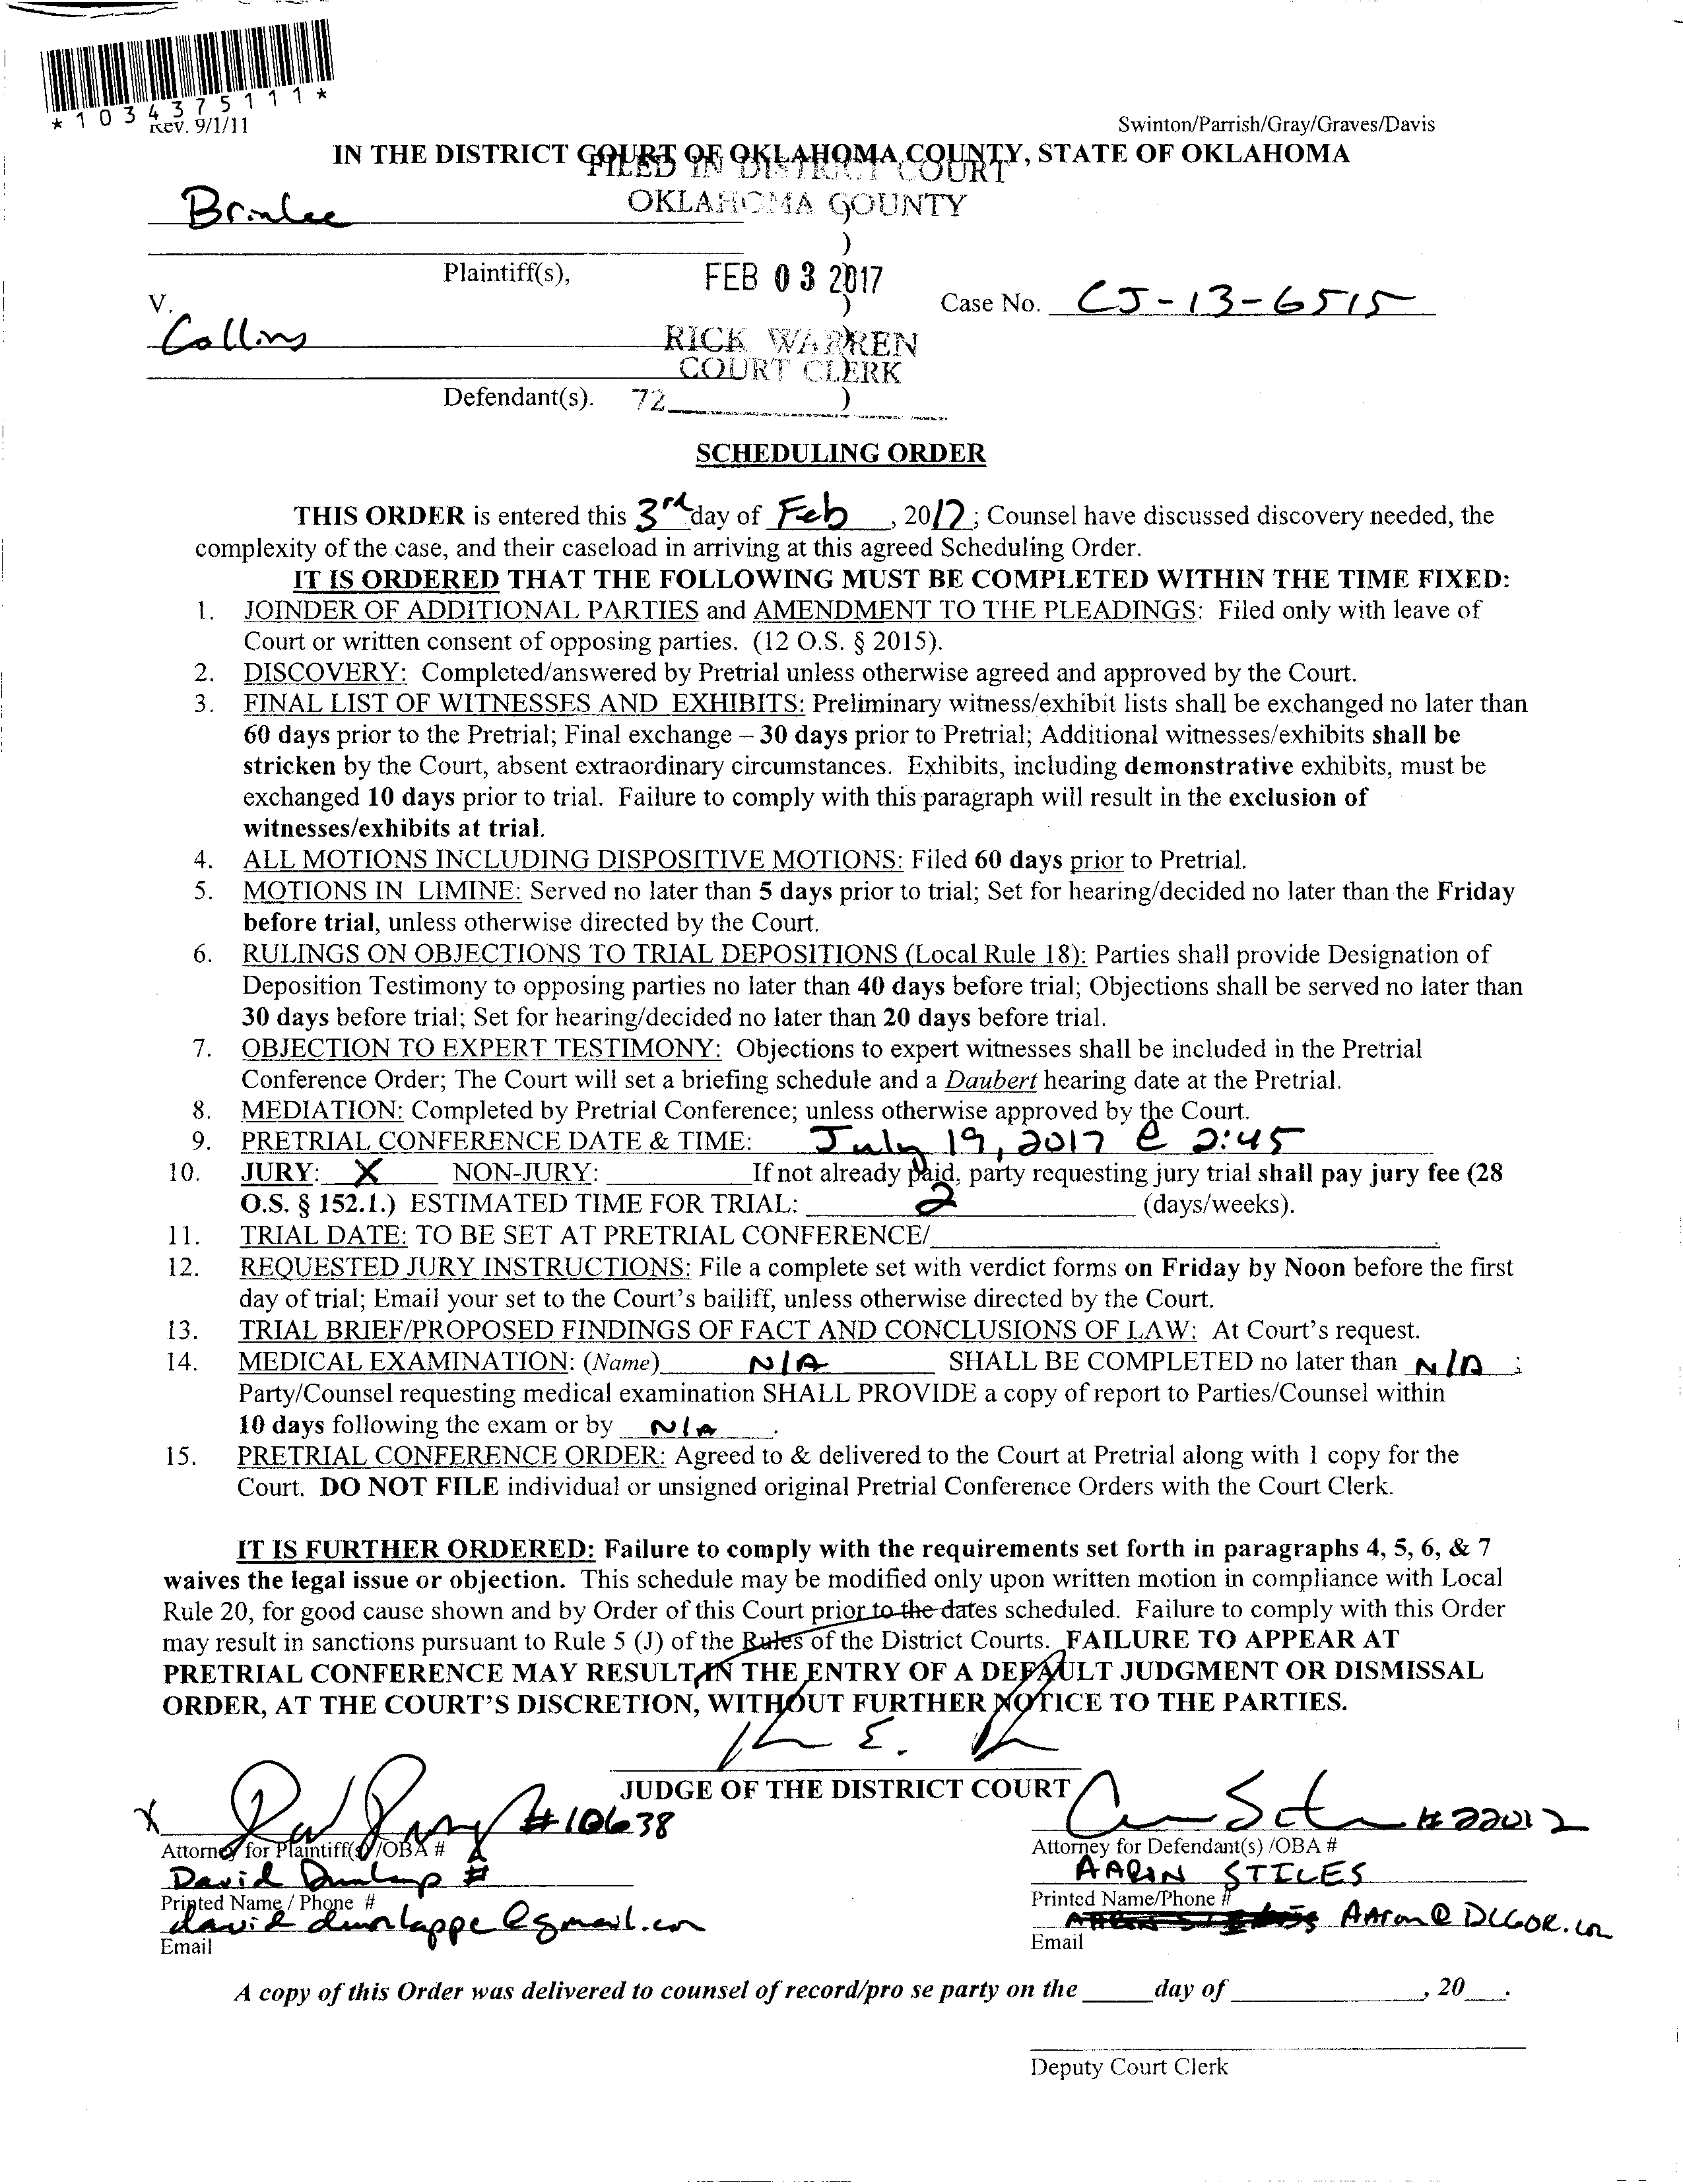 *1034375111*
Rev. 9/1/11
Swinton/Parrish/Gray/Graves/Davis
IN THE DISTRICT COURT OF OKLAHOMA COUNTY, STATE OF OKLAHOMA
FILED IN DISTRICT COURT
OKLAHOMA COUNTY
Brinlee
)
Plaintiff(s),
FEB 03 2017
)
V.
Case No. CJ-13-6515
Collins
RICK WARREN
COURT CLERK
Defendant(s). 72 )
SCHEDULING ORDER
THIS ORDER is entered this 3rd day of Feb, 2017; Counsel have discussed discovery needed, the
complexity of the case, and their caseload in arriving at this agreed Scheduling Order.
IT IS ORDERED THAT THE FOLLOWING MUST BE COMPLETED WITHIN THE TIME FIXED:
1. JOINDER OF ADDITIONAL PARTIES and AMENDMENT TO THE PLEADINGS: Filed only with leave of
Court or written consent of opposing parties. (12 O.S. § 2015).
2. DISCOVERY: Completed/answered by Pretrial unless otherwise agreed and approved by the Court.
3. FINAL LIST OF WITNESSES AND EXHIBITS: Preliminary witness/exhibit lists shall be exchanged no later than
60 days prior to the Pretrial; Final exchange – 30 days prior to Pretrial; Additional witnesses/exhibits shall be
stricken by the Court, absent extraordinary circumstances. Exhibits, including demonstrative exhibits, must be
exchanged 10 days prior to trial. Failure to comply with this paragraph will result in the exclusion of
witnesses/exhibits at trial.
4. ALL MOTIONS INCLUDING DISPOSITIVE MOTIONS: Filed 60 days prior to Pretrial.
5. MOTIONS IN LIMINE: Served no later than 5 days prior to trial; Set for hearing/decided no later than the Friday
before trial, unless otherwise directed by the Court.
6. RULINGS ON OBJECTIONS TO TRIAL DEPOSITIONS (Local Rule 18): Parties shall provide Designation of
Deposition Testimony to opposing parties no later than 40 days before trial; Objections shall be served no later than
30 days before trial; Set for hearing/decided no later than 20 days before trial.
7. OBJECTION TO EXPERT TESTIMONY: Objections to expert witnesses shall be included in the Pretrial
Conference Order; The Court will set a briefing schedule and a Daubert hearing date at the Pretrial.
8. MEDIATION: Completed by Pretrial Conference; unless otherwise approved by the Court.
9. PRETRIAL CONFERENCE DATE & TIME: July 19, 2017 @ 2:45
10. JURY: X NON-JURY: If not already paid, party requesting jury trial shall pay jury fee (28
O.S. § 152.1.) ESTIMATED TIME FOR TRIAL: 2 (days/weeks).
11. TRIAL DATE: TO BE SET AT PRETRIAL CONFERENCE/ .
12. REQUESTED JURY INSTRUCTIONS: File a complete set with verdict forms on Friday by Noon before the first
day of trial; Email your set to the Court's bailiff, unless otherwise directed by the Court.
13. TRIAL BRIEF/PROPOSED FINDINGS OF FACT AND CONCLUSIONS OF LAW: At Court's request.
14. MEDICAL EXAMINATION: (Name) N/A SHALL BE COMPLETED no later than N/A ;
Party/Counsel requesting medical examination SHALL PROVIDE a copy of report to Parties/Counsel within
10 days following the exam or by N/A .
15. PRETRIAL CONFERENCE ORDER: Agreed to & delivered to the Court at Pretrial along with 1 copy for the
Court. DO NOT FILE individual or unsigned original Pretrial Conference Orders with the Court Clerk.
IT IS FURTHER ORDERED: Failure to comply with the requirements set forth in paragraphs 4, 5, 6, & 7
waives the legal issue or objection. This schedule may be modified only upon written motion in compliance with Local
Rule 20, for good cause shown and by Order of this Court prior to the dates scheduled. Failure to comply with this Order
may result in sanctions pursuant to Rule 5 (J) of the Rules of the District Courts. FAILURE TO APPEAR AT
PRETRIAL CONFERENCE MAY RESULT IN THE ENTRY OF A DEFAULT JUDGMENT OR DISMISSAL
ORDER, AT THE COURT'S DISCRETION, WITHOUT FURTHER NOTICE TO THE PARTIES.
JUDGE OF THE DISTRICT COURT
X #10638 #22012
Attorney for Plaintiff(s)/OBA # Attorney for Defendant(s) /OBA #
David Dunlap # AARON STILES
Printed Name / Phone # Printed Name/Phone #
david dunlappc@gmail.com Aaron@DLGOK.com
Email Email
A copy of this Order was delivered to counsel of record/pro se party on the day of , 20 .
Deputy Court Clerk